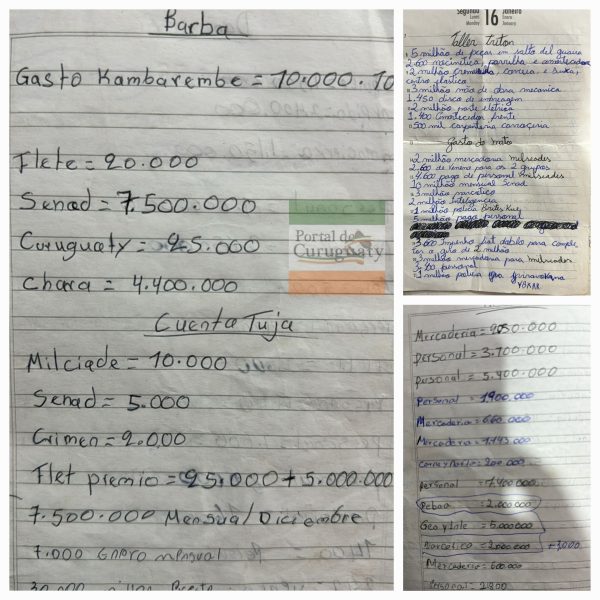 Barba
Gasto Kambarembe = 10.000.10
Flete = 20.000
Senad = 7.500.000
Curuguaty = 25.000
Chara = 4.400.000
Cuenta Tuja
Milciade = 10.000
Senad = 5.000
Crimen = 20.000
Flet premio = 25.000 + 5.000.000
7.500.000 Mensual Diciembre
7.000 Enero mensual
Portal de
Curuguaty
Segunda
Lunes
Monday
16
Janeiro
Enero
January
Taller triton
5 milhão de peças em salto del guaira
2 milhão cremalheira, correia e
centro elastica
3 milhão mão de obra mecanica
1.450 disco de embreagem
2 milhão parte elétrica
1.400 amortecedor frente
500 mil carpenteria carraçeria
Gasto do mato
2 milhão mercadoria milciades
2.600 de veneno para os 2 grupos
4.600 paga de personal milciades
10 milhão mensual Senad
3 milhão narcotico
2 milhão Inteligencia
1 milhão policia Britez Kue
5 milhão paga personal
3 milhão mercadoria para milciades
3.400 personal
1 milhão policia
Mercaderia = 9050.000
personal = 3.700.000
personal = 5.400.000
Personal = 1900.000
Mercaderia = 660.000
Mercaderia = 1.143.000
= 200.000
personal = 7.400.000
= 2.000.000
Geo y Inte = 5.000.000
Narcotico = 2.000.000 + 3,000
Mercaderia = 600.000
Personal = 2.800